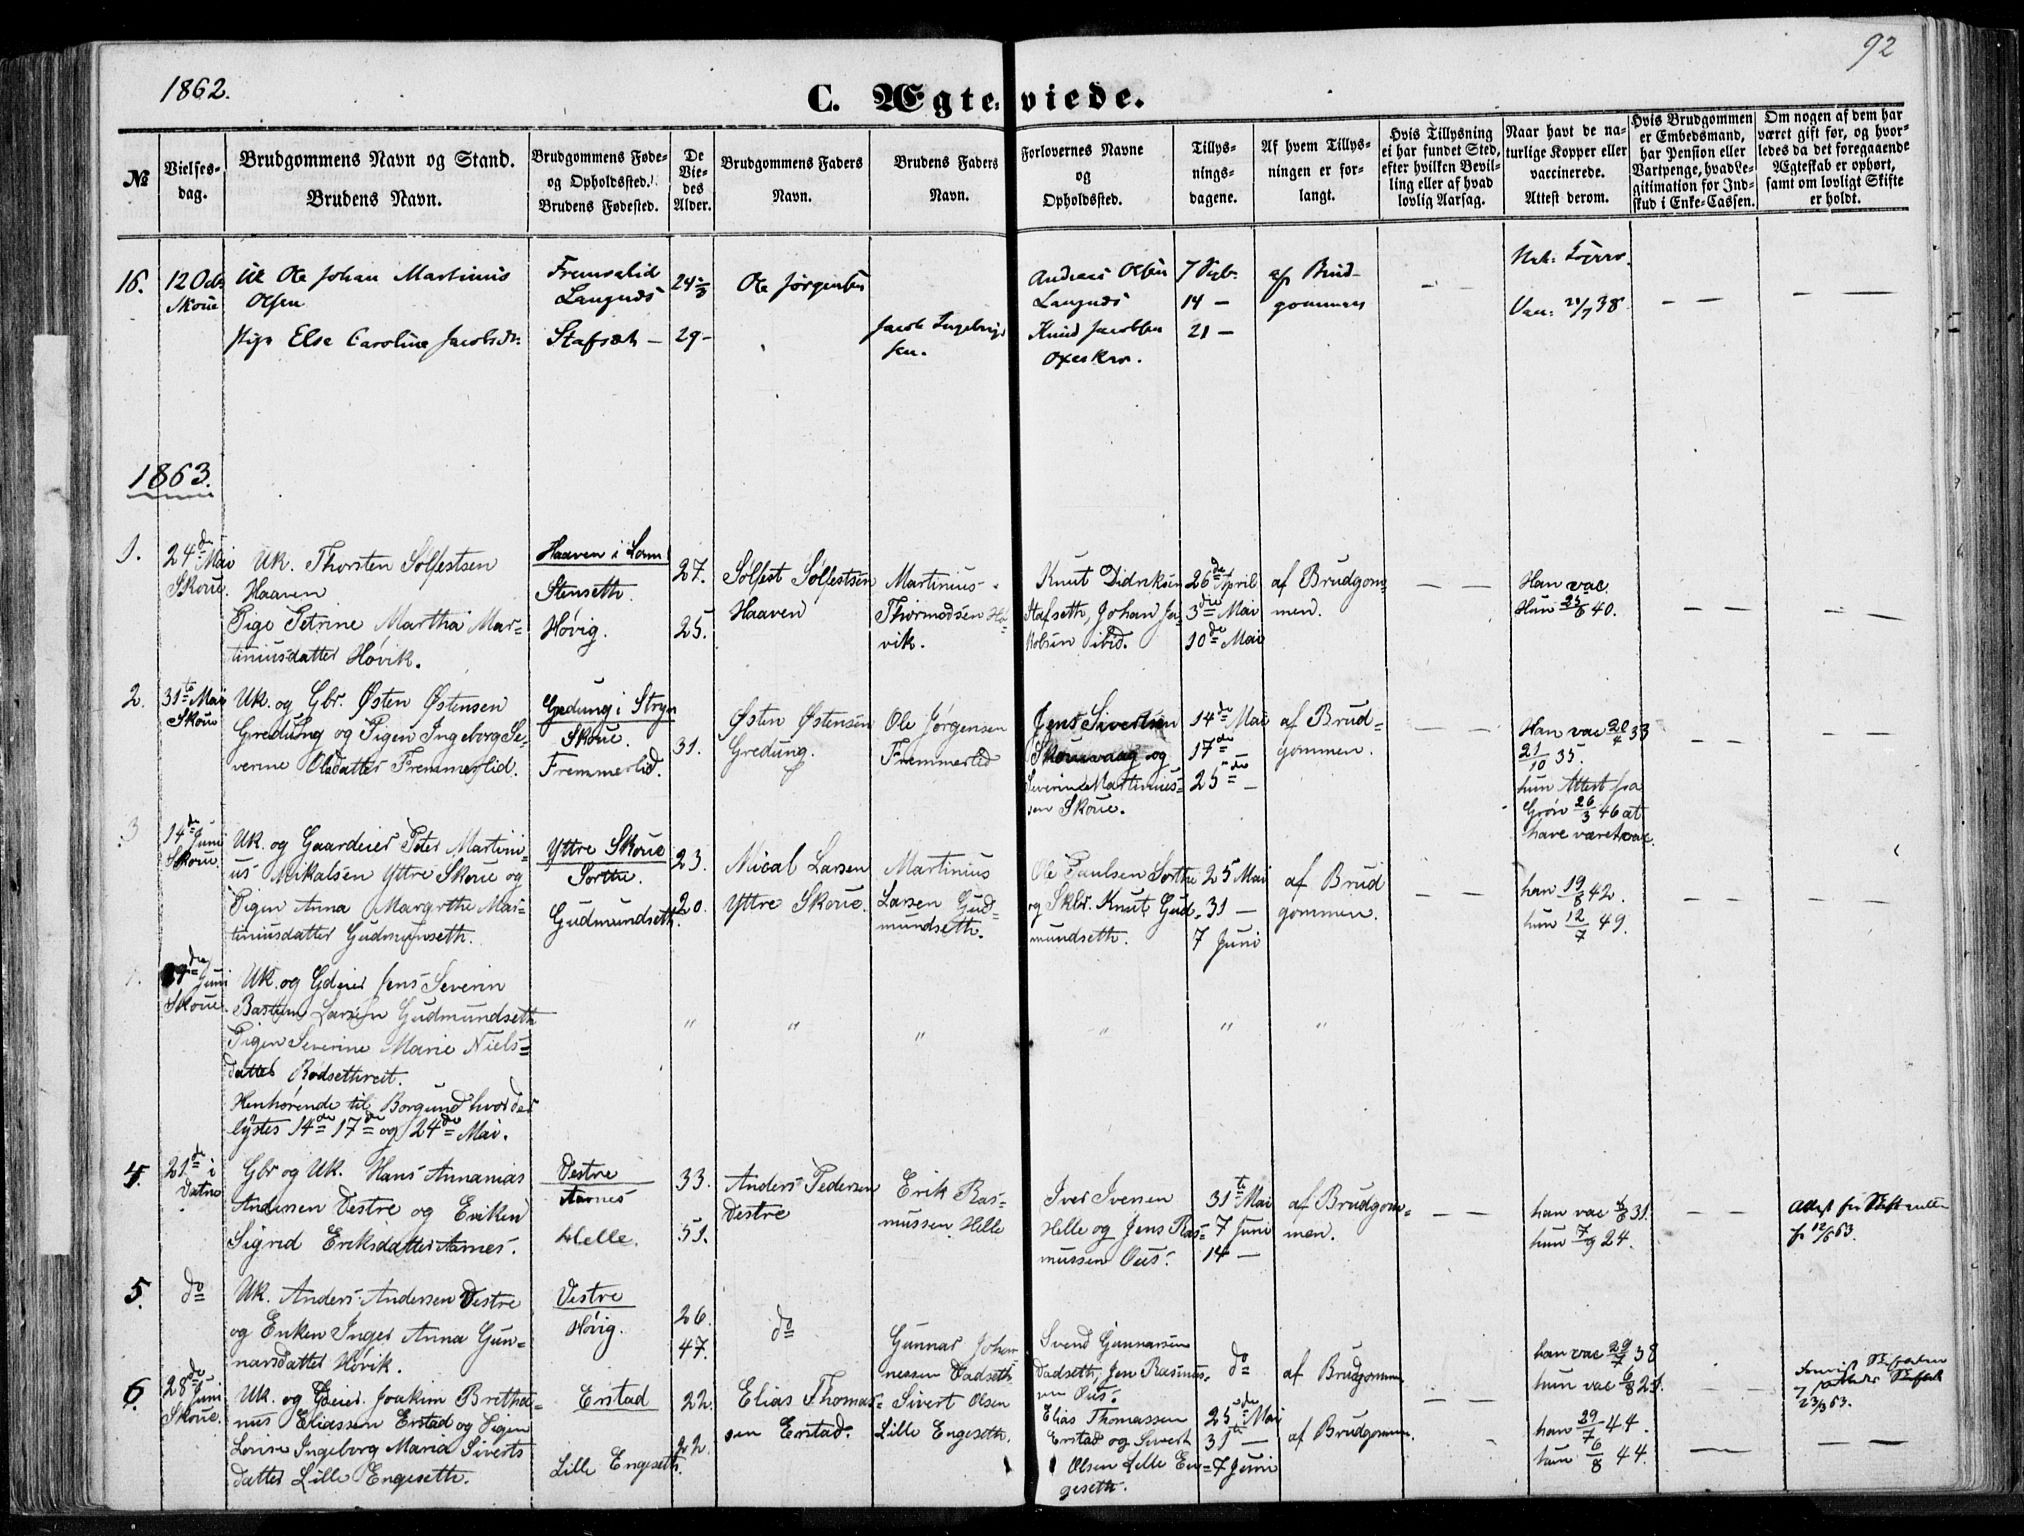 92
1862.
C. Ægteviede.
№
Vielses-
dag.
Brudgommens Navn og Stand.
Brudens Navn.
Brudgommens Føde-
og Opholdssted.
Brudens Fødested.
De
Vie-
des
Alder.
Brudgommens Faders
Navn.
Brudens Faders
Navn.
Forlovernes Navne
og
Opholdssted.
Tillys-
nings-
dagene.
Af hvem Tillys-
ningen er for-
langt.
Hvis Tillysning
ei har fundet Sted,
efter hvilken Bevil-
ling eller af hvad
lovlig Aarsag.
Naar havt de na-
turlige Kopper eller
vaccinerede.
Attest derom.
Hvis Brudgommen
er Embedsmand,
har Pension eller
Vartpenge, hvad Le-
gitimation for Ind-
skud i Enke-Cassen.
Om nogen af dem har
været gift før, og hvor-
ledes da det foregaaende
Ægteskab er ophørt,
samt om lovligt Skifte
er holdt.
16.
12 Octb.
Skoue
Uk Ole Johan Martinus
Olsen
Pige Else Caroline Jacobsdr.
Langnæs
Stafsæth
29
Ole Jørgensen
Jacob Ingebrigt
sen.
Andreas Olsen
Langnæs
Knud Jacobsen
7 Septb.
14 —
21 —
af Brud-
gommen
1863.
1.
24de Mai
Skoue.
Uk. Thorsten Sølfestsen
Haaven
Pige Petrine Martha Mar-
tiniusdatter Høvik.
Haaven i Lom
Stenseth.
Høvig.
27.
25.
Sølfest Sølfestsen
Haaven
Martinius
Thormodsen Hø-
vik.
Knut Didriksen
Stafseth, Johan Ja-
kobsen ibid.
26de April
3die Mai
10de Mai
af Brudgom-
men.
Han vac.
Hun 25/6 40.
2.
31te Mai
Skoue
Uk. og Gbr. Østen Østensen
Gredung og Pigen Ingeborg Se-
verine Olsdatter Fremmerlid.
Gredung i Stryn
Skoue.
Fremmerlid.
31.
Østen Østensen
Gredung.
Ole Jørgensen
Fremmerlid
Jens Sivertsen
Skouevaag og
Severin Martinius-
sen Skoue.
14de Mai
17de
25de —
af Brud-
gommen.
Han vac 20/4 33
21/10 35.
hun Attest fra
Grøn 26/3 46 at
have været vac.
3
14de Juni
Skoue
Uk. og Gaardeier Peter Martini-
us Mikalsen Yttre Skoue og
Pigen Anna Margrethe Mar-
tiniusdatter Gudmunseth.
Yttre Skoue
Sortte.
Gudmundseth
23.
20.
Mical Larsen
Yttre Skoue.
Martinius
Larsen Gud-
mundseth.
Ole Paulsen Sorthe
og Skbr. Knut Gud-
mundseth.
25 Mai
31 —
7 Juni
af Brud
gommen.
han 19/8 42.
hun 12/7 49.
Juni
Skoue
Uk. og Gdeier Jens Severin
Bastian Larsen Gudmundseth
Pigen Severine Marie Niels-
datter Rødsethreit.
Henhørende til Borgund hvor der
lystes 14de 17de og 24de Mai.
4.
21de i
Vatne
Gbr og Uk. Hans Annanias
Andersen Vestre og Enken
Sigrid Eriksdatter Aarnes.
Vestre
Aarnes
Helle.
33.
51.
Anders Pedersen
Vestre
Erik Ras-
mussen Helle
Iver Iversen
Helle og Jens Ras-
mussen Ous.
31te Mai
7 Juni
14 —
af Brudgom-
men.
han vac 31.
hun 7/9 24.
12/6 63.
5.
do
Uk. Anders Andersen Vestre
og Enken Inger Anna Gun-
narsdatter Høvik.
Vestre
Høvig.
26.
47.
do
Gunnar Johan
nessen Vadseth.
Svend Gunnarsen
Vadseth, Jens Rasmus-
sen Ous.
do
af Brudgommen
han vac 29/7 38
hun vac 6/8 21.
23/3 63.
6.
28de Juni
Skoue.
Uk. og Gdeier Joakim Brethe-
nus Eliassen Erstad og Pigen
Lovise Ingeborg Maria Siverts
datter Lille Engeseth.
Erstad
Lille Engeseth.
22.
22.
Elias Thomas-
sen Erstad.
Sivert Olsen
Lille Engeseth.
Elias Thomassen
Erstad og Sivert
Olsen Lille En-
geseth.
25de Mai
31te —
7 Juni
af Brudgommen.
han 29/7 44.
hun 6/8 44.